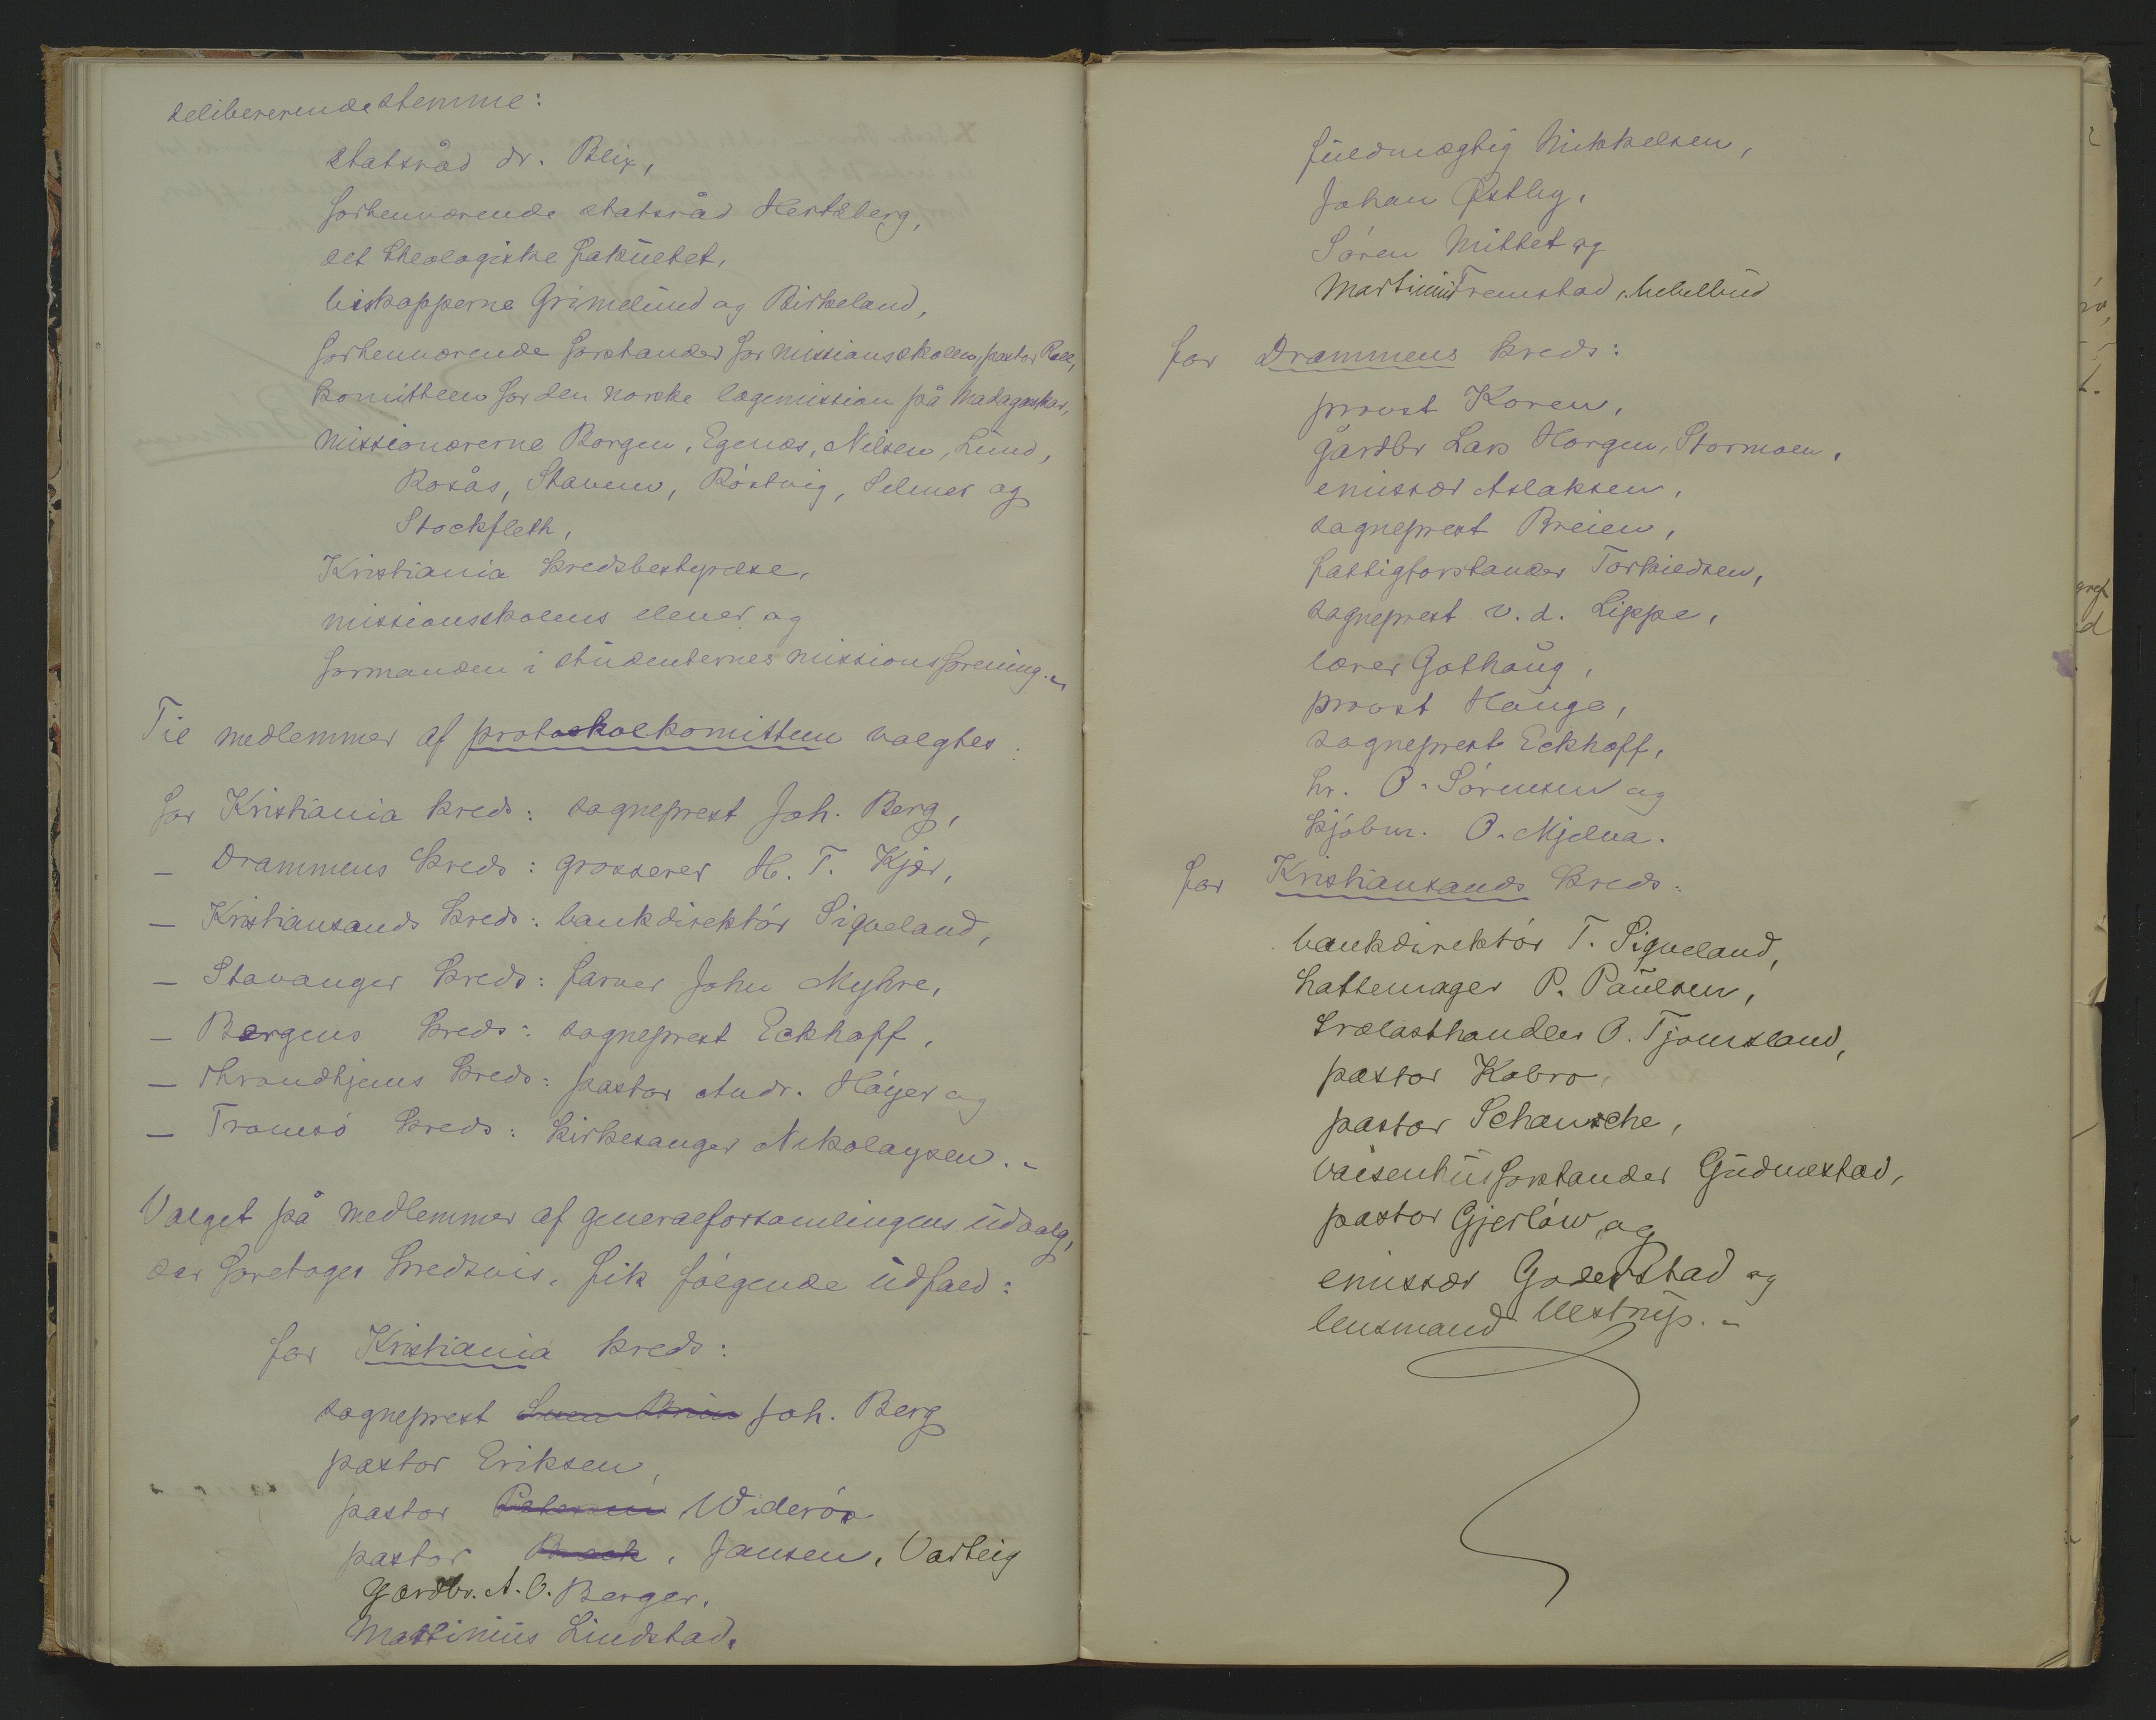 delibererende stemme:
statsråd dr. Blix,
forhenværende statsråd Hertzberg,
det theologiske fakultet,
biskopperne Grimelund og Birkeland,
forhenværende forstander for missionsskolen, pastor Roll,
komitteen for den norske lægemission på Madagaskar,
missionærerne Borgen, Egenæs, Nilsen, Lund,
Rosås, Stavem, Röstvig, Selmer og
Stockfleth,
Kristiania kredsbestyrelse,
missionsskolens elever og
formanden i studenternes missionsforening. –
Til medlemmer af protokolkomitteen valgtes:
for Kristiania kreds: sogneprest Joh. Berg,
– Drammens kreds: grosserer H. T. Kjær,
– Kristiansands kreds: bankdirektör Siqveland,
– Stavanger kreds: farver John Myhre,
– Bergens kreds: sogneprest Eckhoff,
– Throndhjems kreds: pastor Andr. Höyer og
– Tromsö kreds: kirkesanger Nikolaysen. –
Valget på medlemmer af generalforsamlingens udvalg,
der foretoges kredsvis, fik fölgende udfald:
for Kristiania kreds:
sogneprest Joh. Berg
pastor Eriksen,
pastor Wideröe
pastor Jansen, Varteig
Gardbr. A. O. Berger,
Martinius Lindstad,
fuldmægtig Mikkelsen,
Johan Østby,
Sören Mittet og
Martinius Tremstad,
for Drammens kreds:
provst Koren,
gårdbr Lars Horgen, Stormoen,
emissær Aslaksen,
sogneprest Breien,
fattigforstander Torkildsen,
sogneprest v. d. Lippe,
lærer Gothaug,
provst Hauge,
sogneprest Eckhoff,
hr. O. Sörensen og
kjöbm. O. Mjelva.
for Kristiansands kreds:
bankdirektör T. Siqveland,
hattemager P. Paulsen,
trælasthandler O. Tjomsland,
pastor Kobro,
pastor Schansche,
vaisenhusforstander Gudmestad,
pastor Gjerlöw, og
emissær Goderstad og
lensmand Vestrup. –